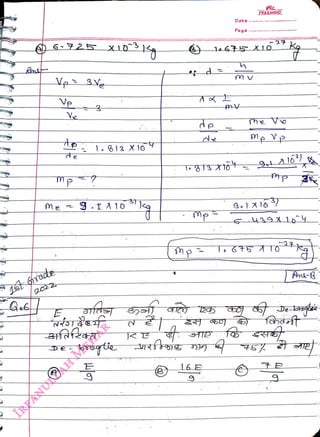 Date
Page
Ⓐ 6.725 x10⁻³ kg Ⓑ 1.675 x10⁻²⁷ kg
Ans-
Vp = 3Ve
Vp/Ve = 3
dp/de = 1.813 x10⁻⁴
mp = ?
me = 9.1x10⁻³¹ kg
∵ d = h/mv
λ ∝ 1/mv
dp/de = me Ve/mp Vp
mp = 9.1x10⁻³¹/5.439x10⁻⁴
mp = 1.675 x10⁻²⁷ kg
Ans-B
1st Grade
2022
Q.6 E गतिज ऊर्जा वाले एक कण की De-broglie
तरंग दैर्ध्य λ है। इस कण को कितनी
अतिरिक्त K.E दी जाए कि इसकी
De-broglie मान की 75% हो जाए
Ⓐ E/9 Ⓑ 16E/9 Ⓒ 7E/9